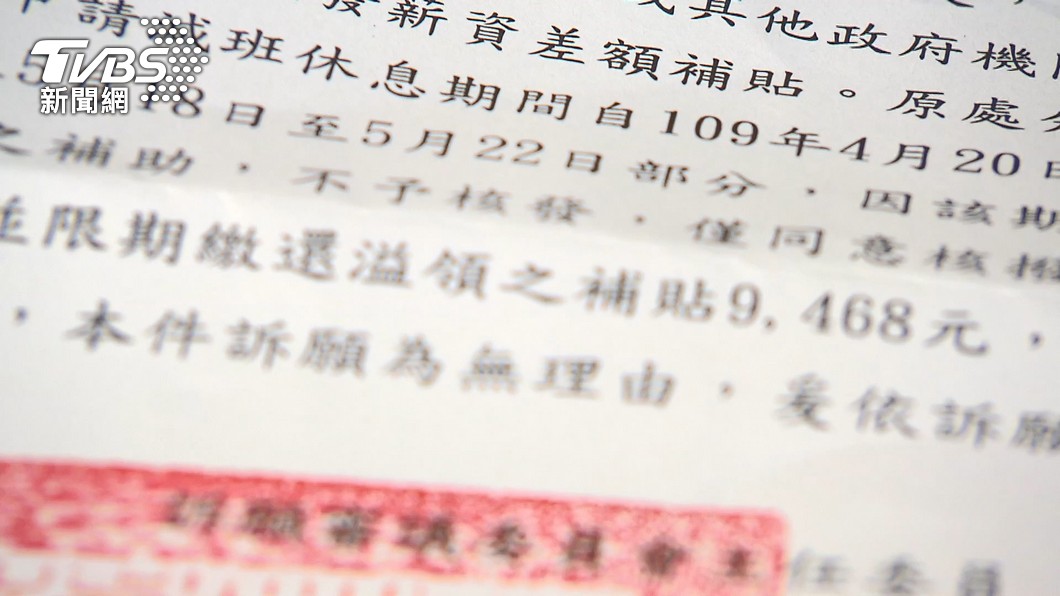 TVBS
新聞網
薪資差額補貼。原處
請減班休息期間自109年4月20日
18日至5月22日部分，因該期
之補助，不予核發，僅同意核撥
並限期繳還溢領之補貼9,468元，
，本件訴願為無理由，爰依訴願
訴願審議委員會主任委員
其他政府機